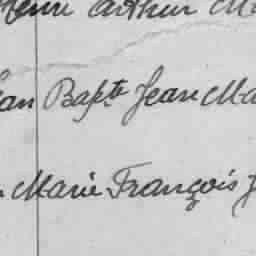 Henri Arthur M
Jean Bapte Jean Ma
Marie François J